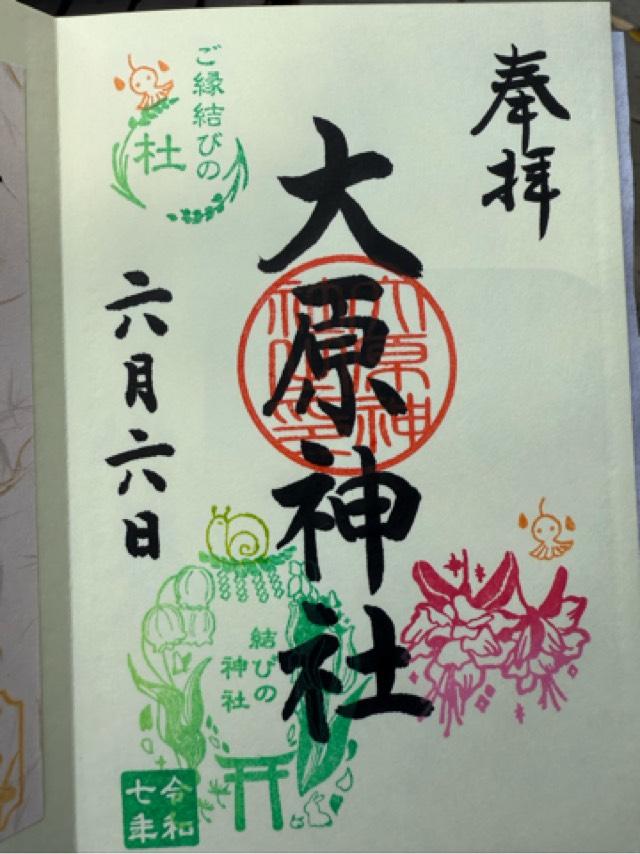 奉拝
大原神社
ご縁結びの
杜
六月六日
結びの
神社
令和
七年